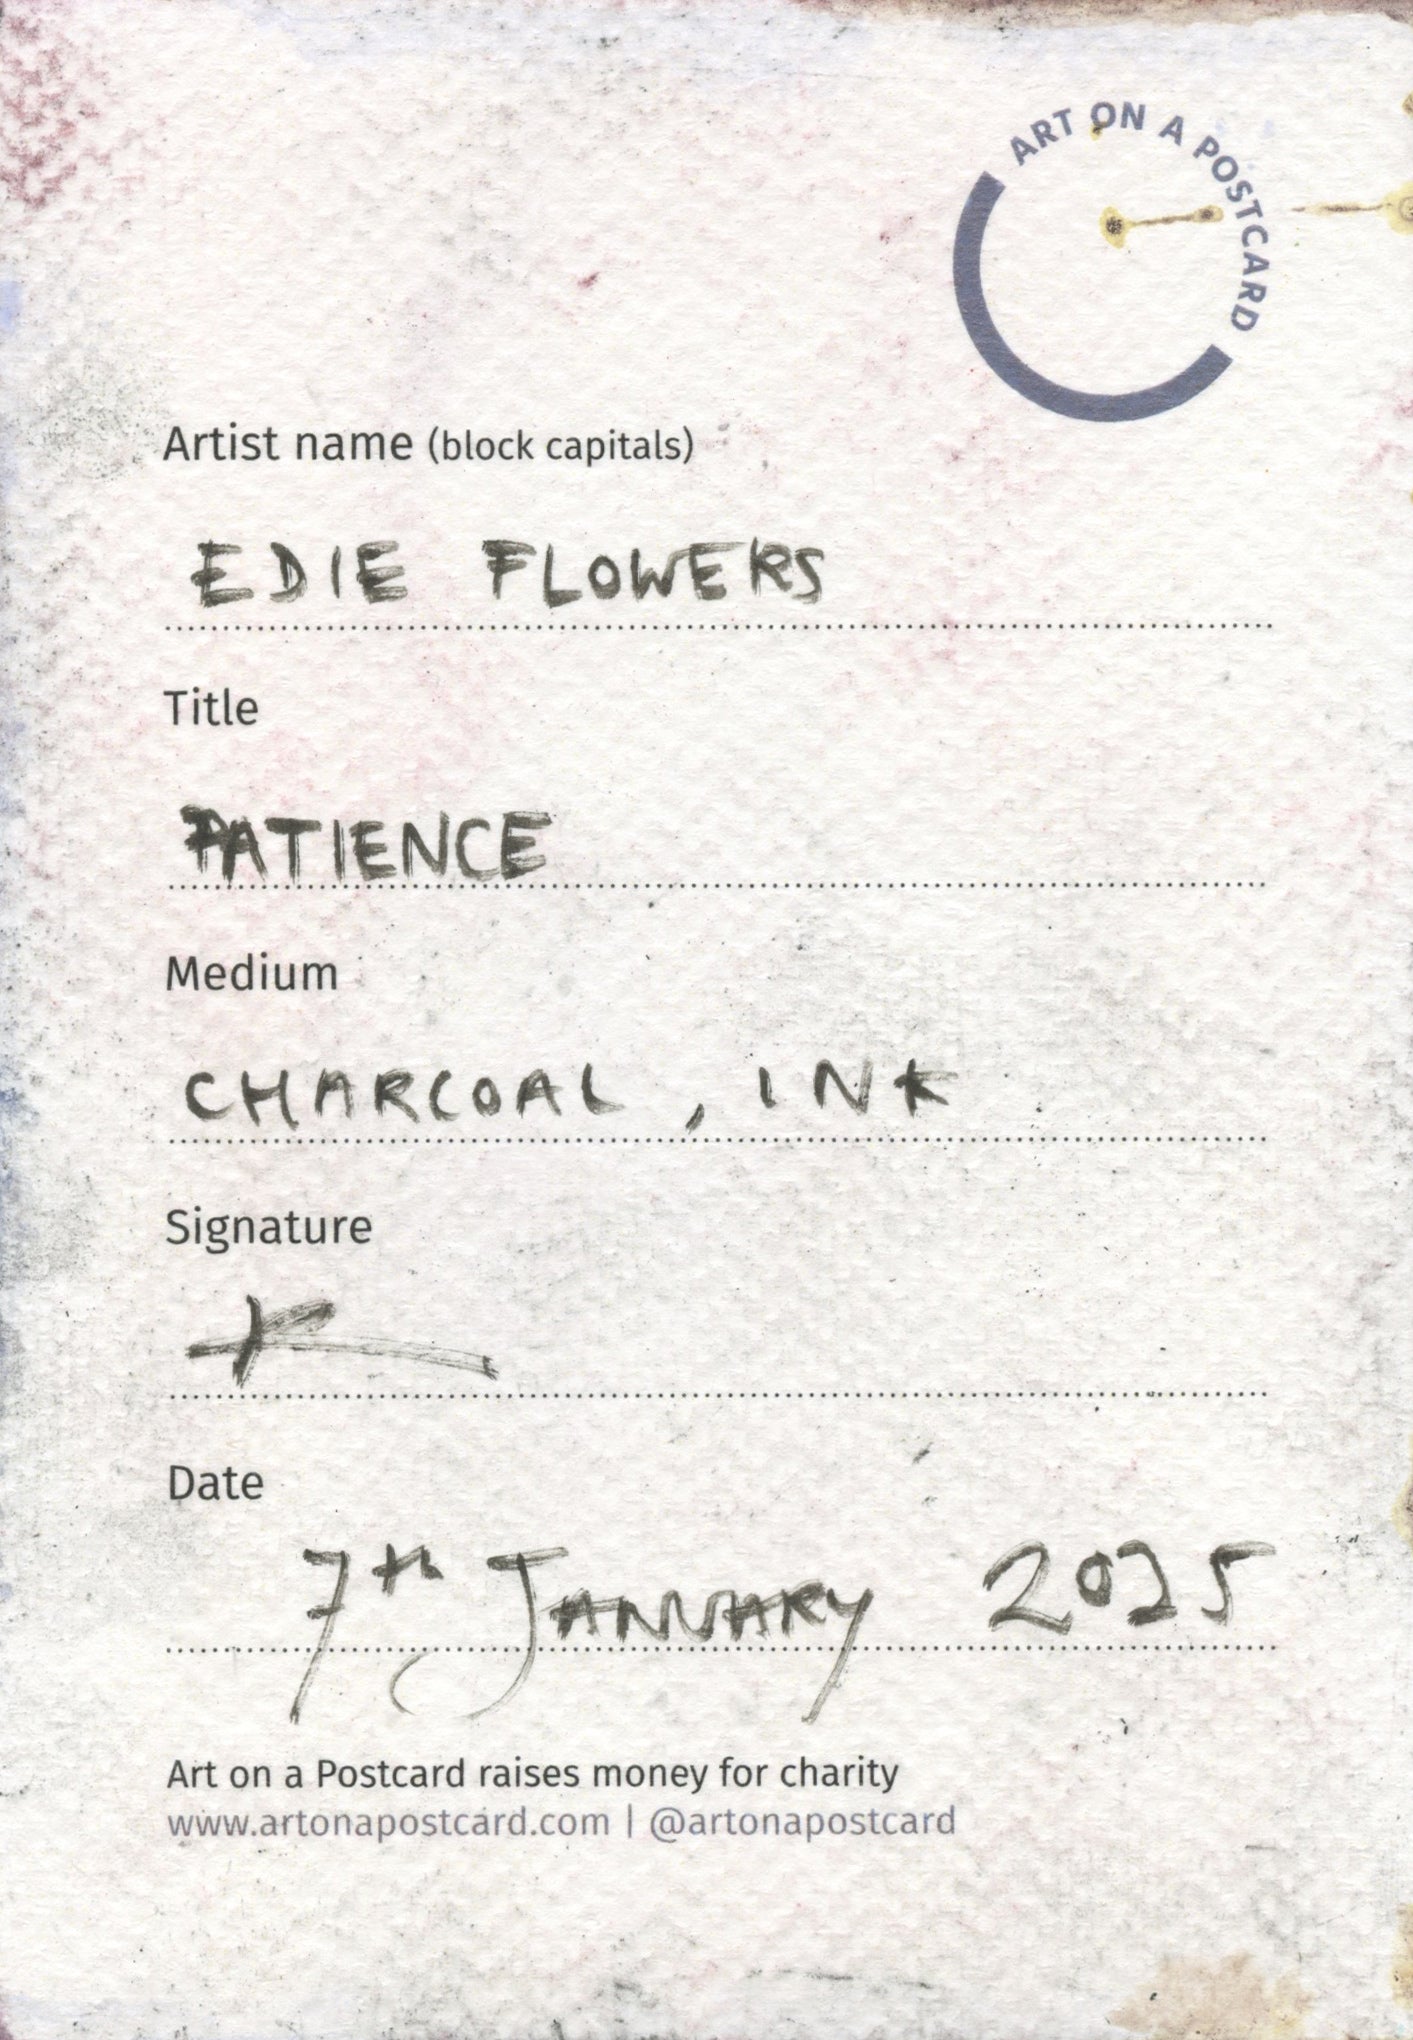 ART ON A POSTCARD
Artist name (block capitals)
EDIE FLOWERS
Title
PATIENCE
Medium
CHARCOAL, INK
Signature
Date
7th JANUARY 2025
Art on a Postcard raises money for charity
www.artonapostcard.com | @artonapostcard